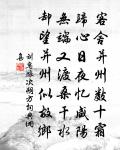 客舍并州數十霜
歸心日夜憶咸陽
無端又渡桑干水
卻望并州似故鄉
劉皂旅次朔方詞典國
集